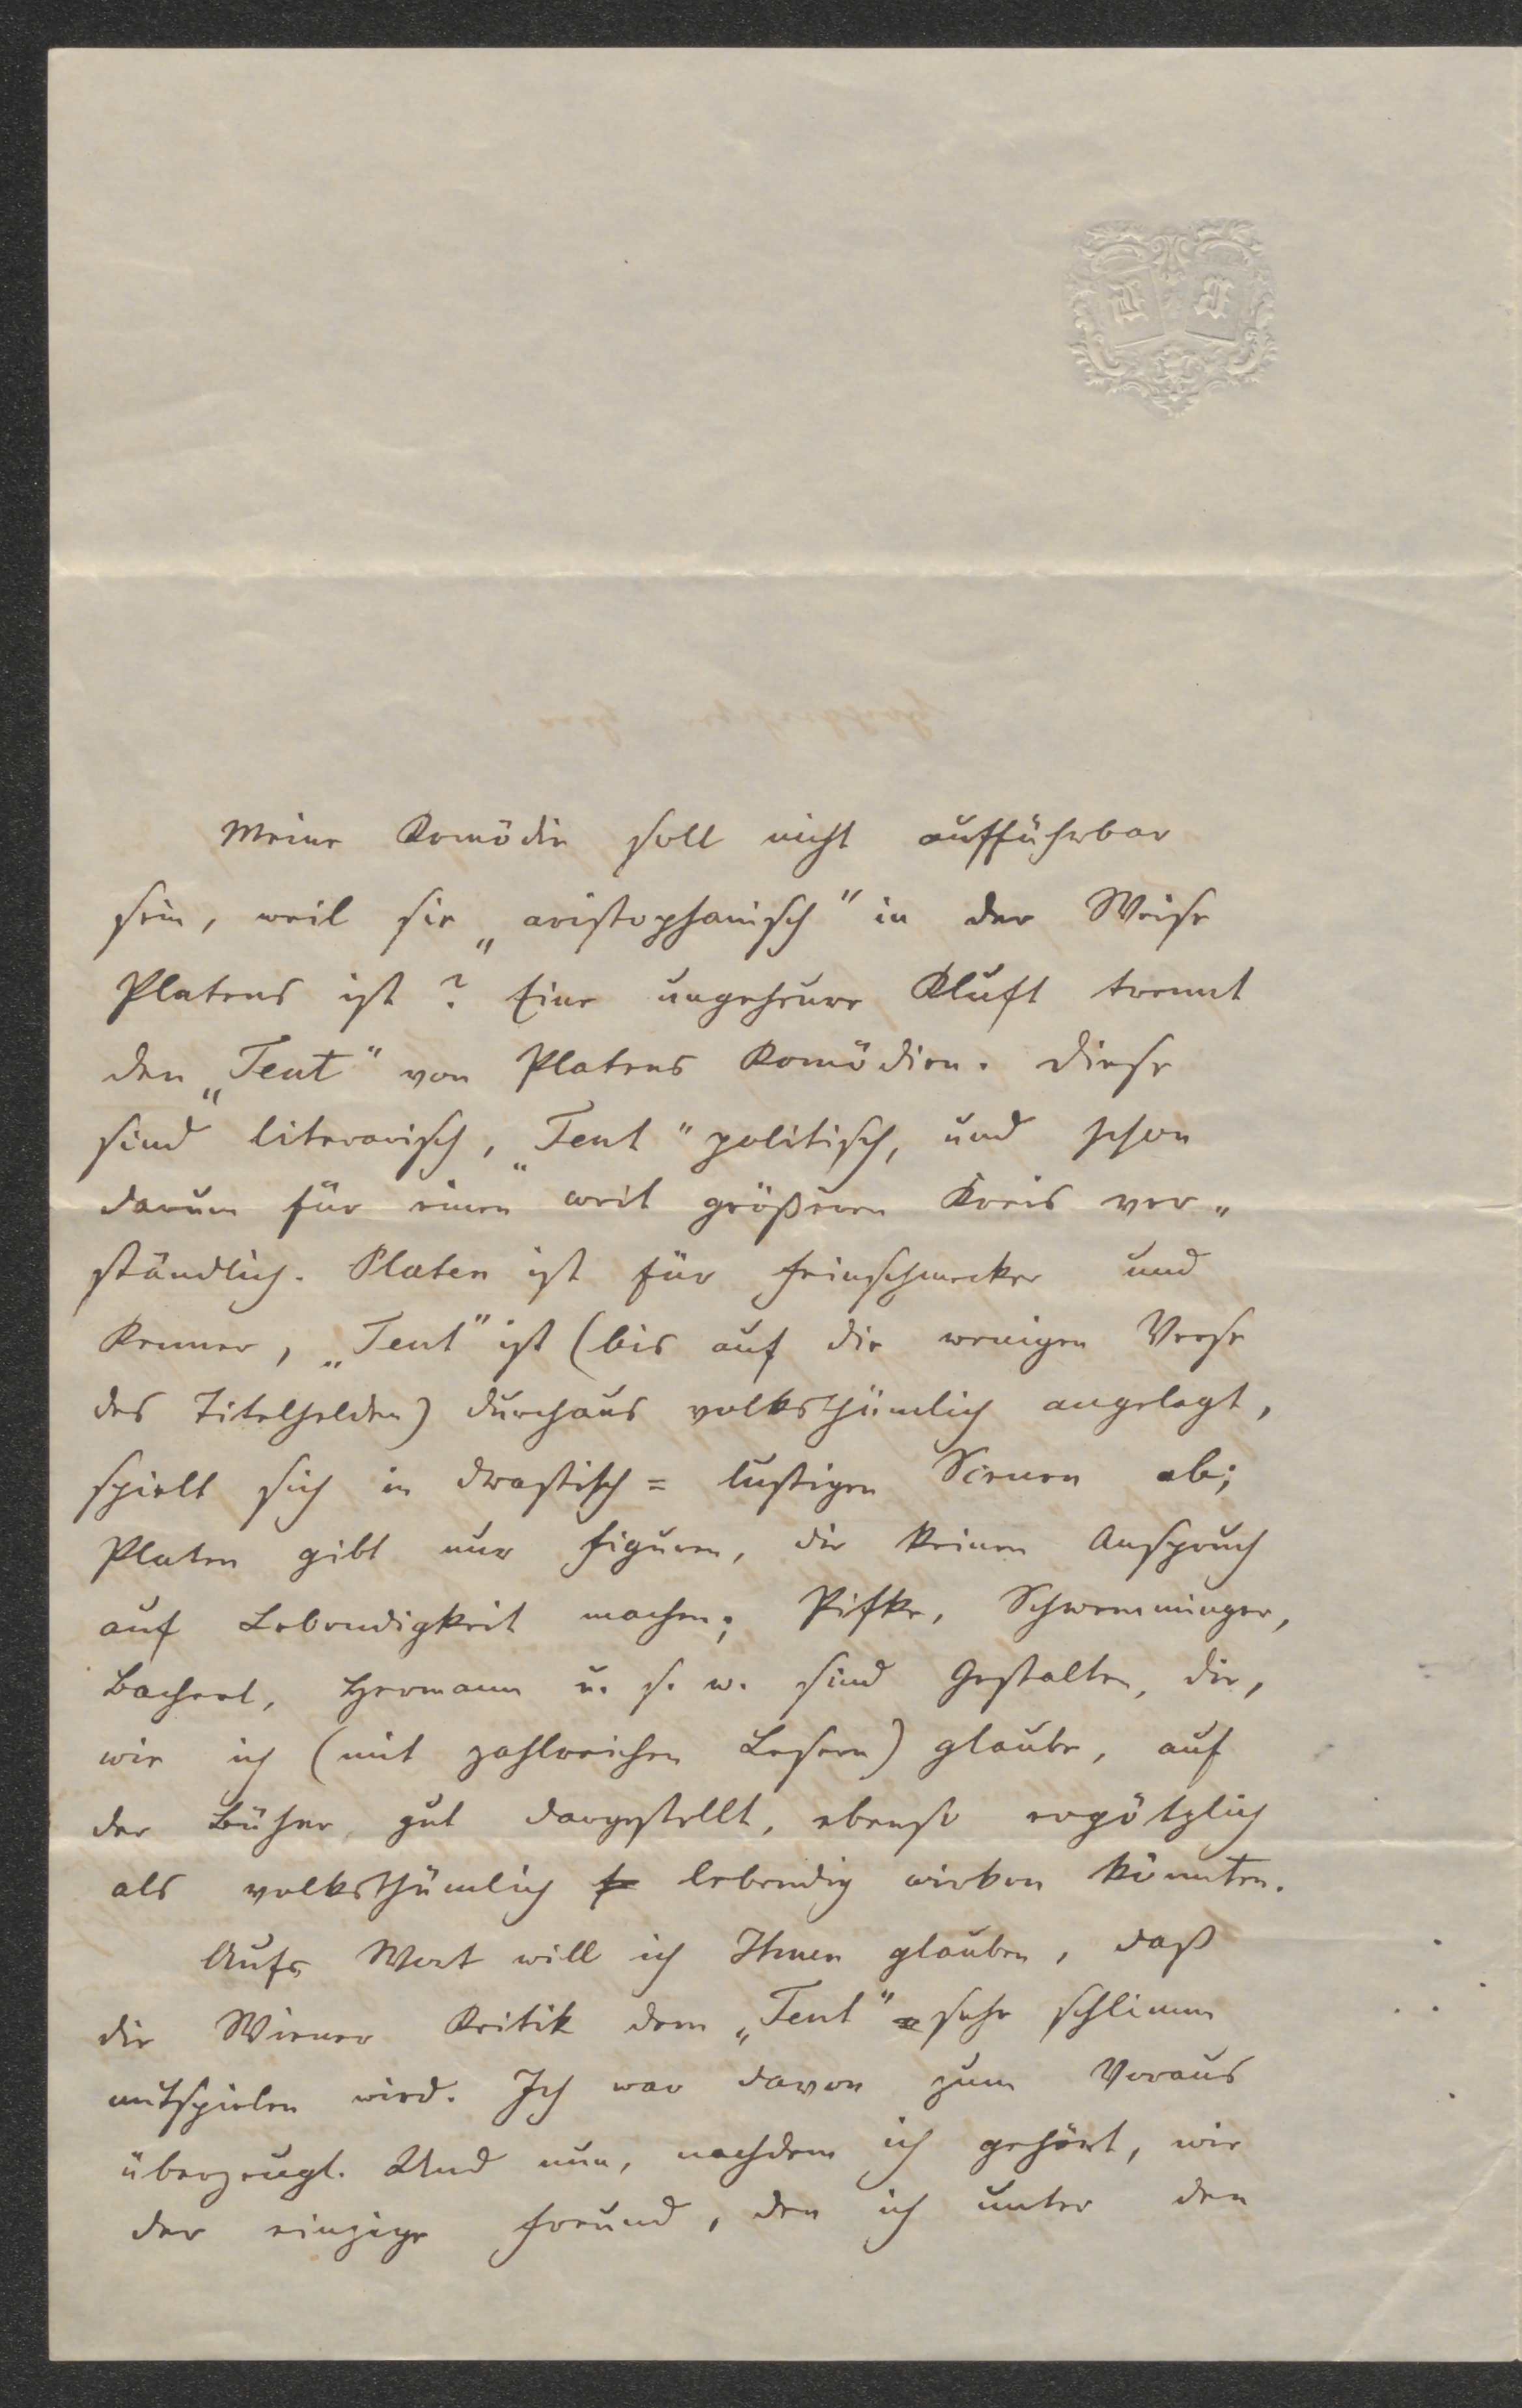 Meine Komödie soll nicht aufführbar
sein, weil sie „aristophanisch" in der Weise
Platens ist? Eine ungeheure Kluft trennt
den „Teut" von Platens Komödien. Diese
sind literarisch, „Teut" politisch, und schon
darum für einen weit größeren Kreis ver„
ständlich. Platen ist für Feinschmecker und
Kenner, „Teut" ist (bis auf die wenigen Verse
des Titelhelden) durchaus volksthümlich angelegt,
spielt sich in drastisch = lustigen Scenen ab;
Platen gibt nur Figuren, die keinen Anspruch
auf Lebendigkeit machen; Pifke, Schwemminger,
Bacherl, Hermann u. s. w. sind Gestalten, die,
wie ich (mit zahlreichen Lesern) glaube, auf
der Bühne, gut dargestellt, ebenso ergötzlich
als volksthümlich lebendig wirken könnten.
Aufs Wort will ich Ihnen glauben, daß
die Wiener Kritik dem „Teut" sehr schlimm
mitspielen wird. Ich war davon zum Voraus
überzeugt. Und nun, nachdem ich gehört, wie
der einzige Freund, den ich unter den